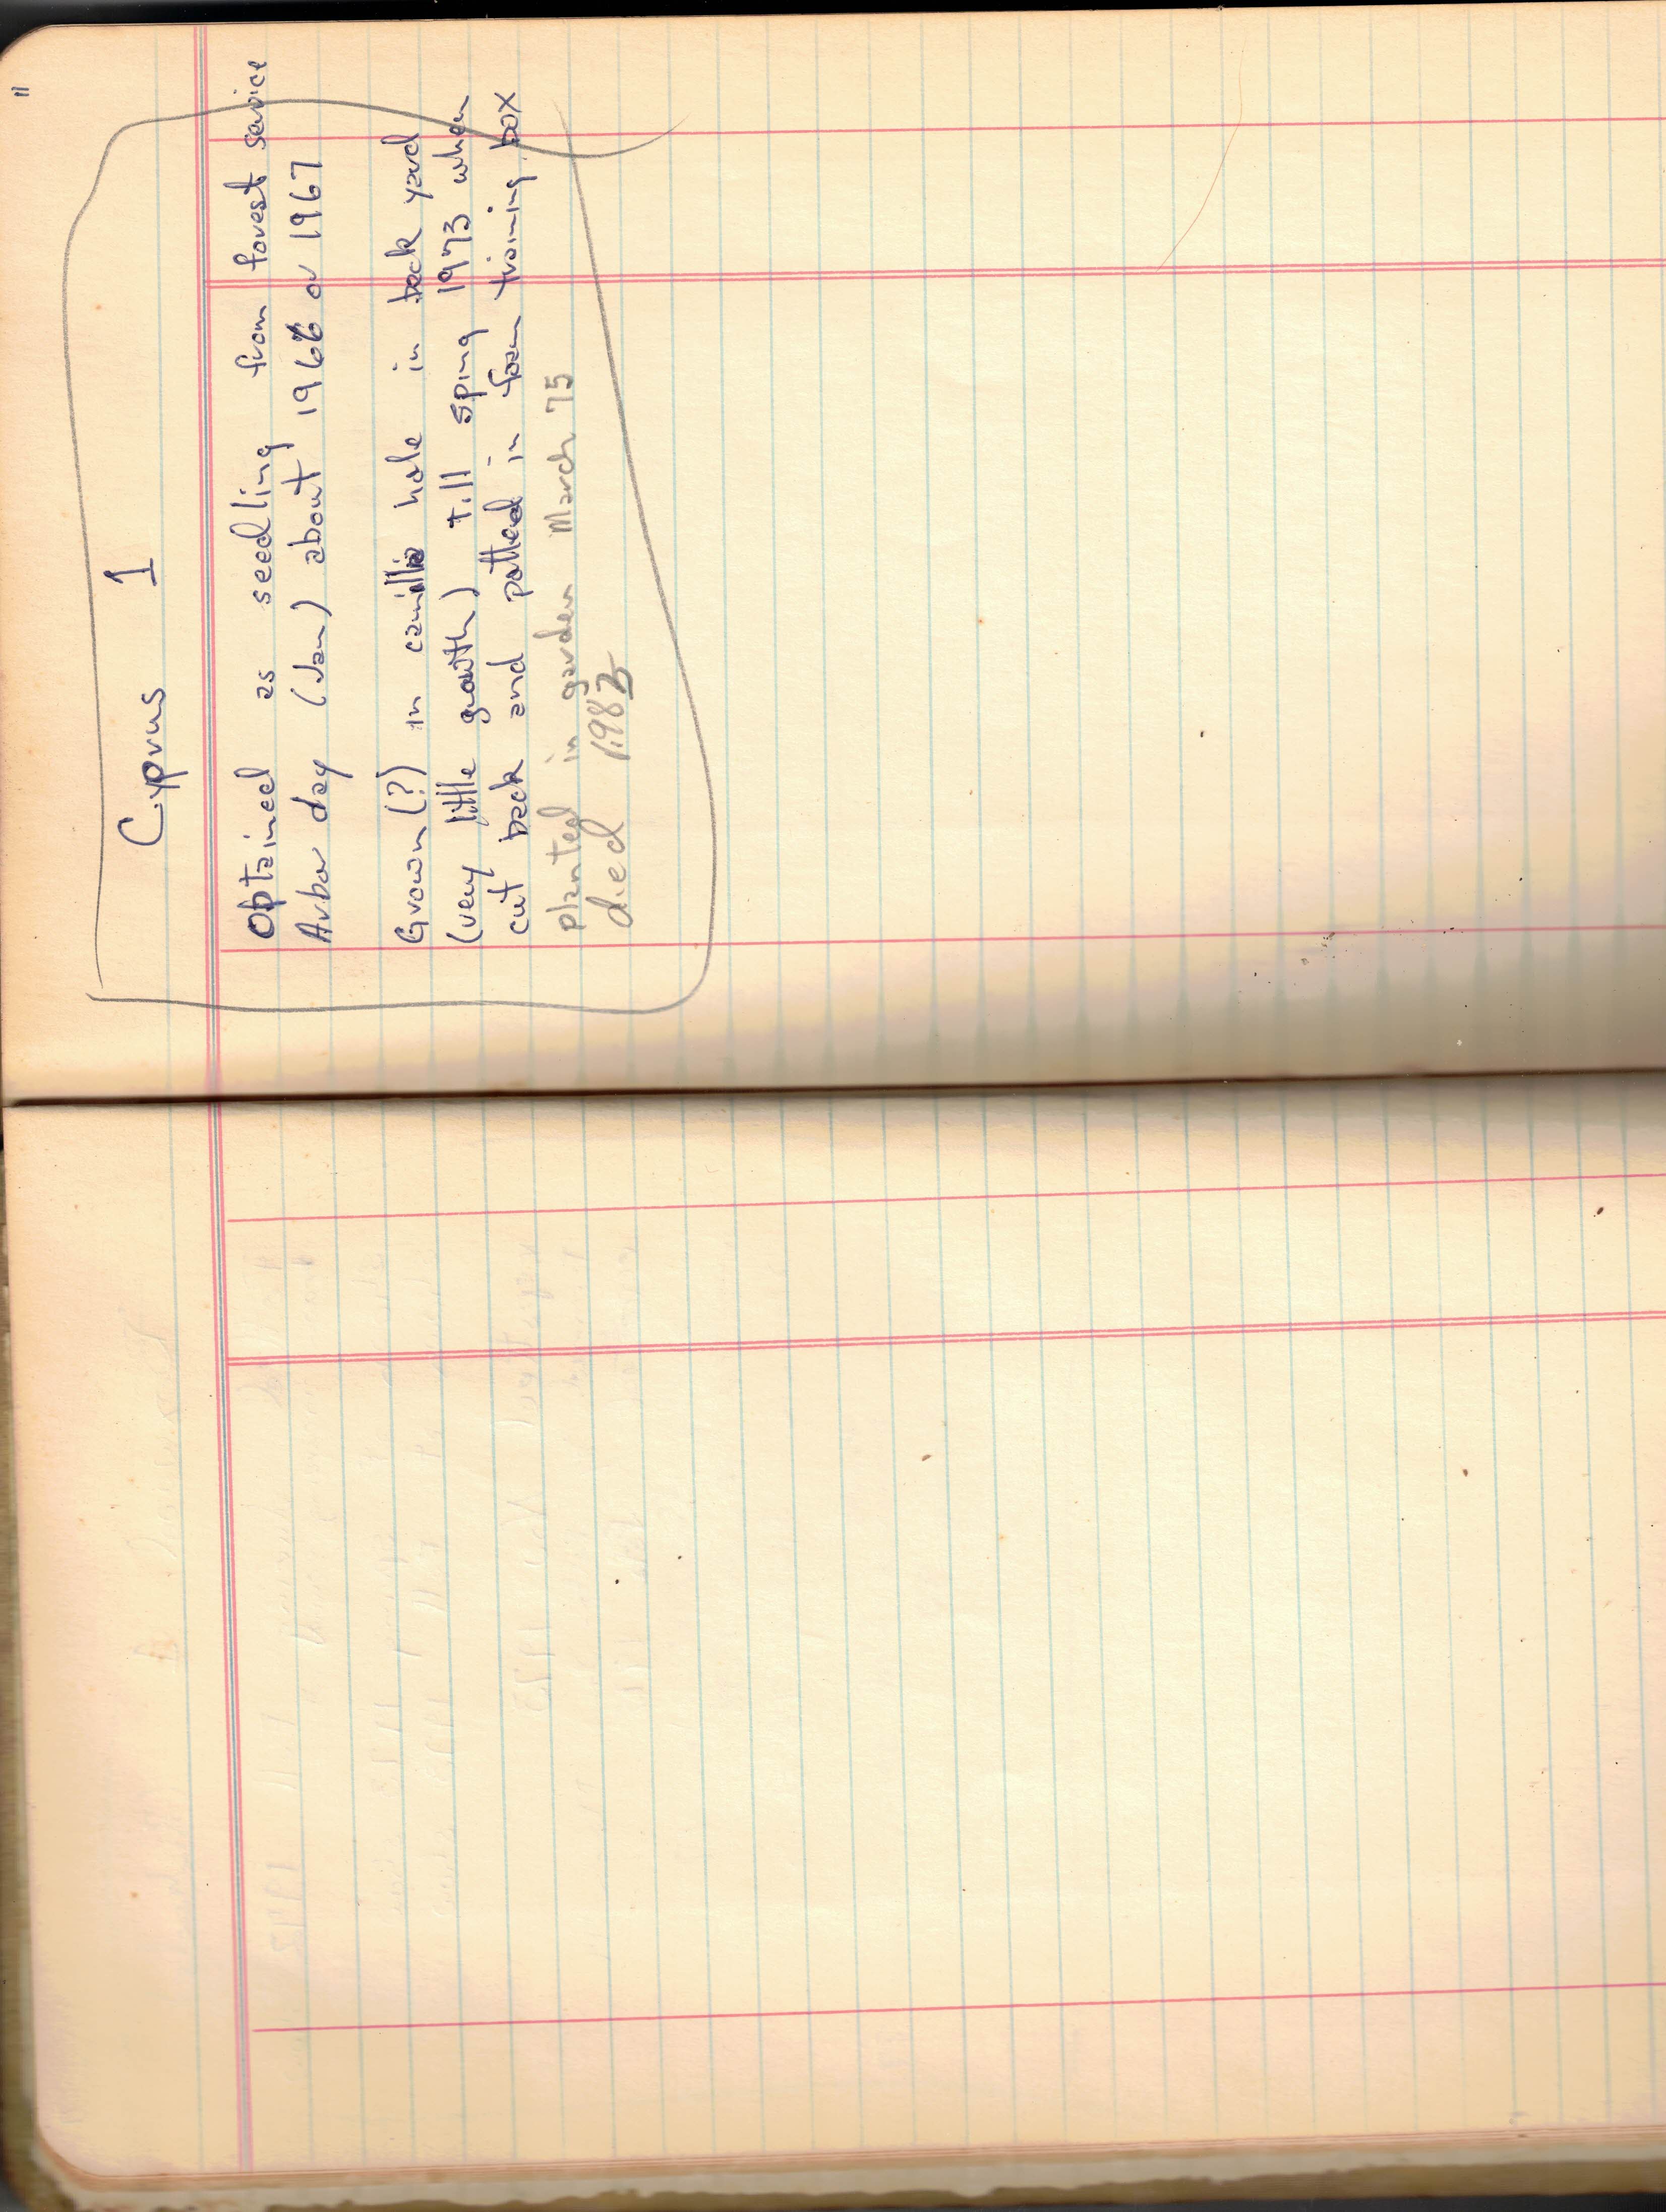 11
Cyprus 1
Obtained as seedling from forest service
Arbor day (Jan) about 1966 or 1967
Grown (?) in camillia hole in back yard
(very little growth) till sping 1973 when
cut back and potted in foam training box
planted in garden March 75
died 1983